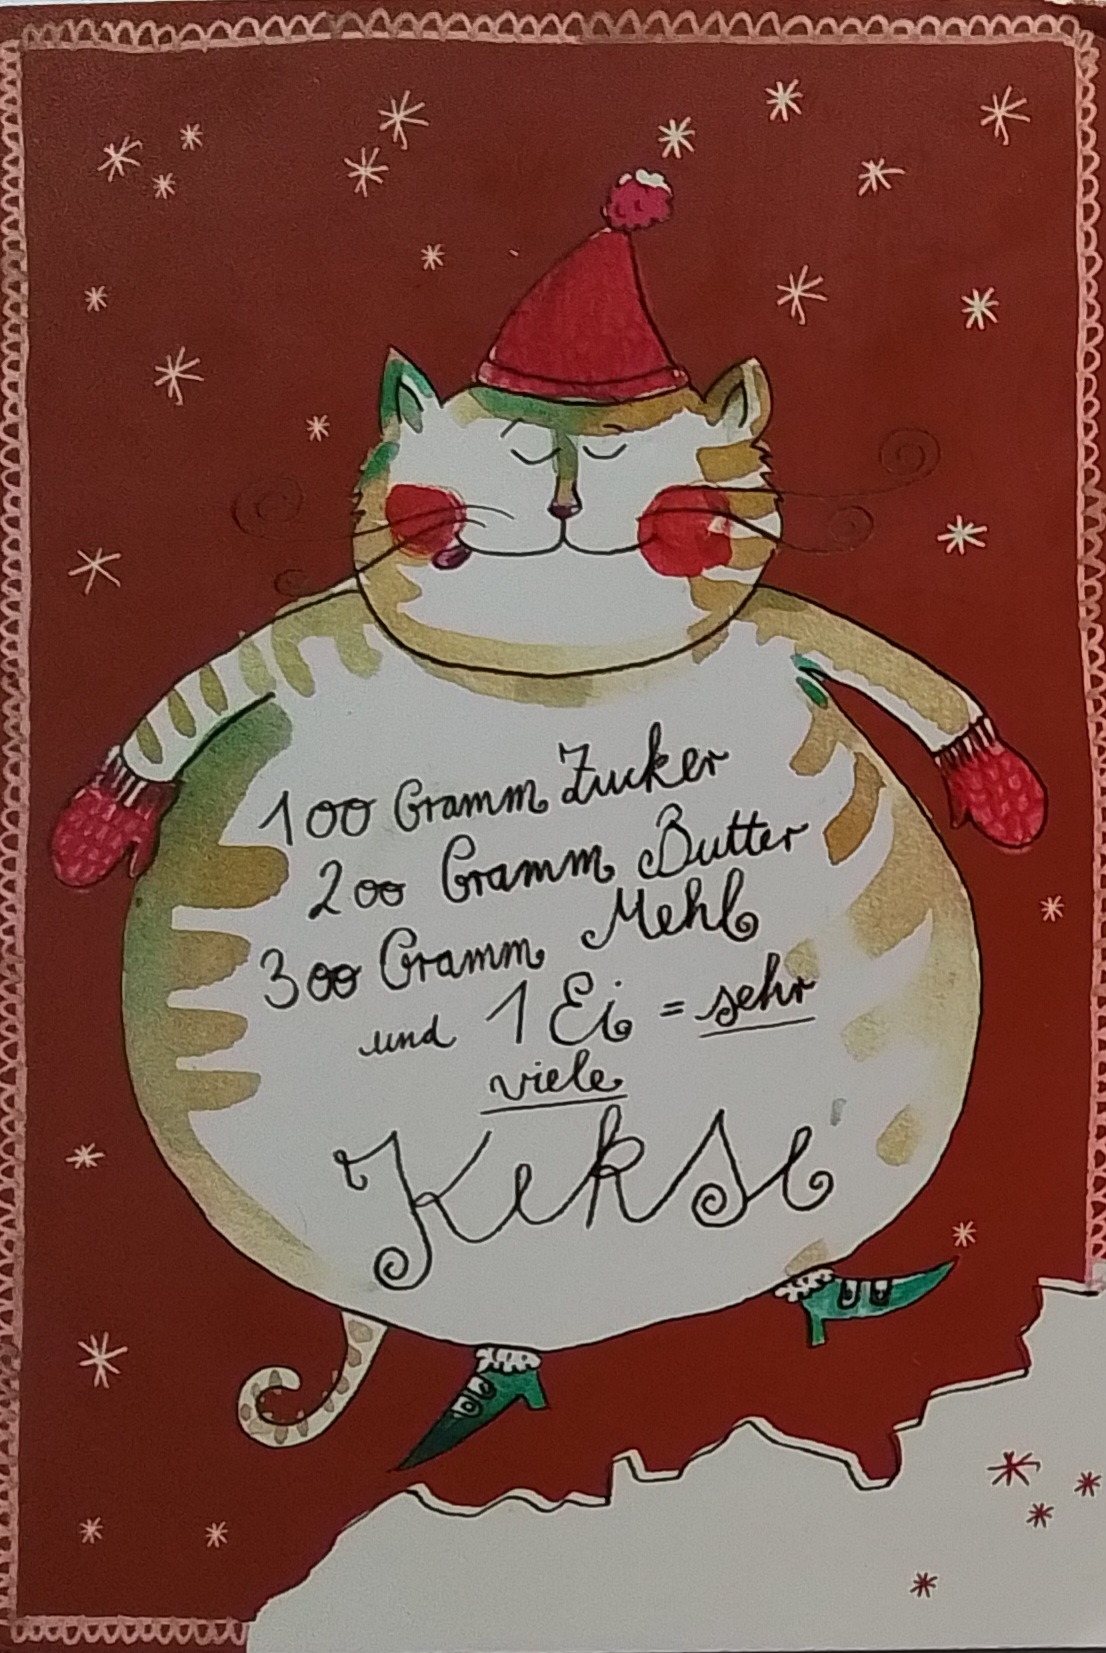 100 Gramm Zucker
200 Gramm Butter
300 Gramm Mehl
und 1 Ei = sehr
viele
Kekse